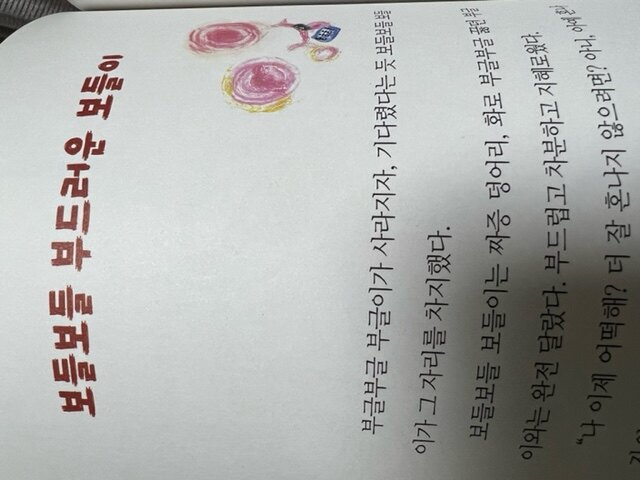 보들보들 부드러운 보들이
부글부글 부글이가 사라지자, 기다렸다는 듯 보들보들 보들
이가 그 자리를 차지했다.
보들보들 보들이는 짜증 덩어리, 화로 부글부글 끓던 부글
이와는 완전 달랐다. 부드럽고 차분하고 지혜로웠다.
“나 이제 어떡해? 더 잘 혼나지 않으려면? 아니, 아예